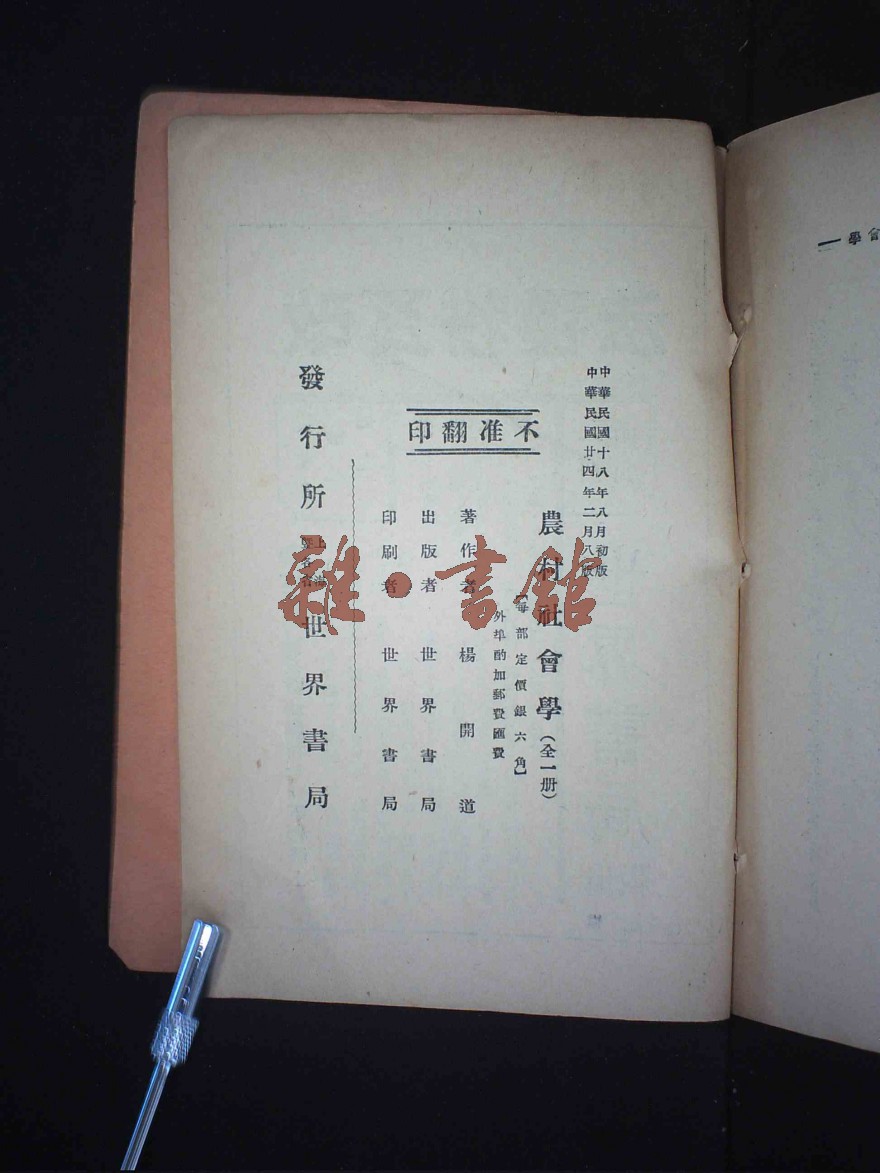 會學
中華民國十八年八月初版
中華民國廿四年二月八版
不准翻印
農村社會學(全一册)
【每部定價銀六角】
外埠酌加郵費匯費
著作者 楊開道
出版者 世界書局
印刷者 世界書局
發行所 上海 世界書局
雜·書館